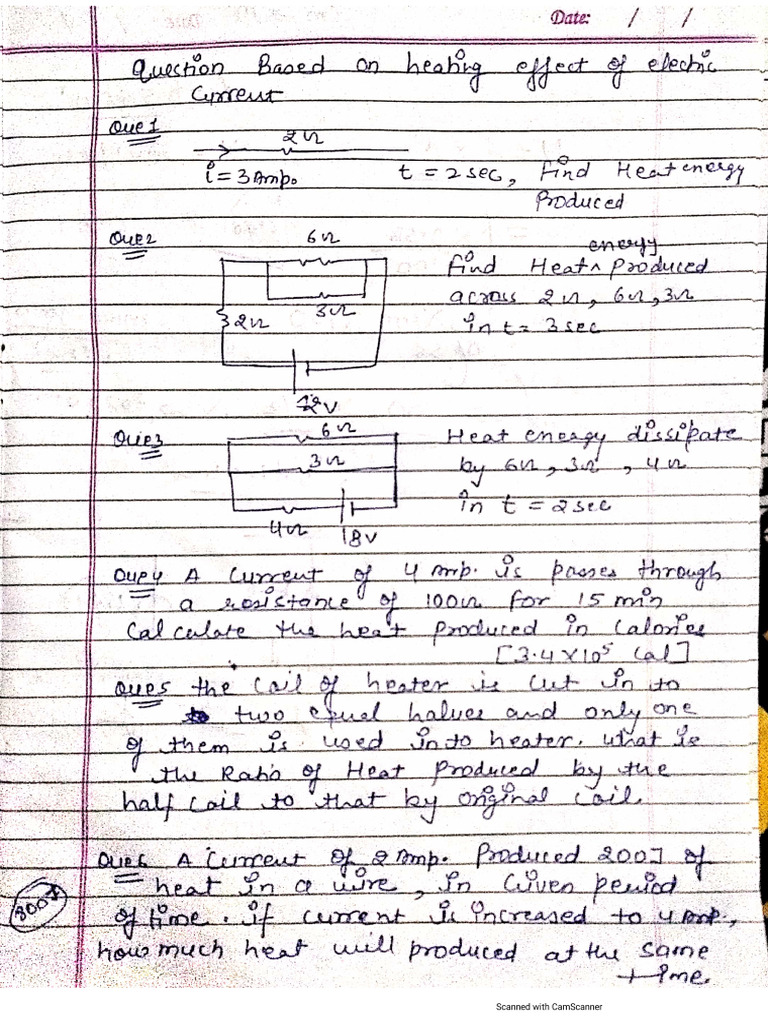 Date: / /
Question Based on heating effect of electric
Current
Que1
2Ω
i = 3 Amp.
t = 2 sec, find Heat energy
Produced
Que2
6Ω
energy
find Heat ^ Produced
3Ω
across 2Ω, 6Ω, 3Ω
2Ω
in t = 3 sec
12V
Que3
6Ω
Heat energy dissipate
3Ω
by 6Ω, 3Ω, 4Ω
in t = 2 sec
4Ω
18V
Que4 A current of 4 Amp. is passes through
a resistance of 100Ω for 15 min
Calculate the heat produced in Calories
[3.4×10⁵ Cal]
Que5 the Coil of heater is Cut in to
two equal halves and only one
of them is used into heater. What is
the Ratio of Heat Produced by the
half coil to that by original Coil.
Que6 A Current of 2 Amp. Produced 200J of
heat in a wire, in Given period
of time. if current is increased to 4 Amp.,
800J
how much heat will produced at the same
time.
Scanned with CamScanner